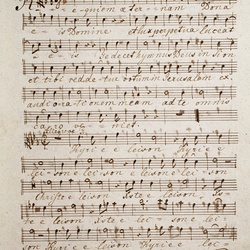 equiem aeternam Dona
eis Domine et lux perpetua luceat
eis Te decet hymnus Deus in Sion
et tibi reddetur votum in Jerusalem ex-
audi orationem meam ad te omnis
caro veniet
Kyrie eleison Kyrie e
leison e leison e leison
Christe eleison iste eleison
te e leison iste elei
son e leison Kyrie e leison